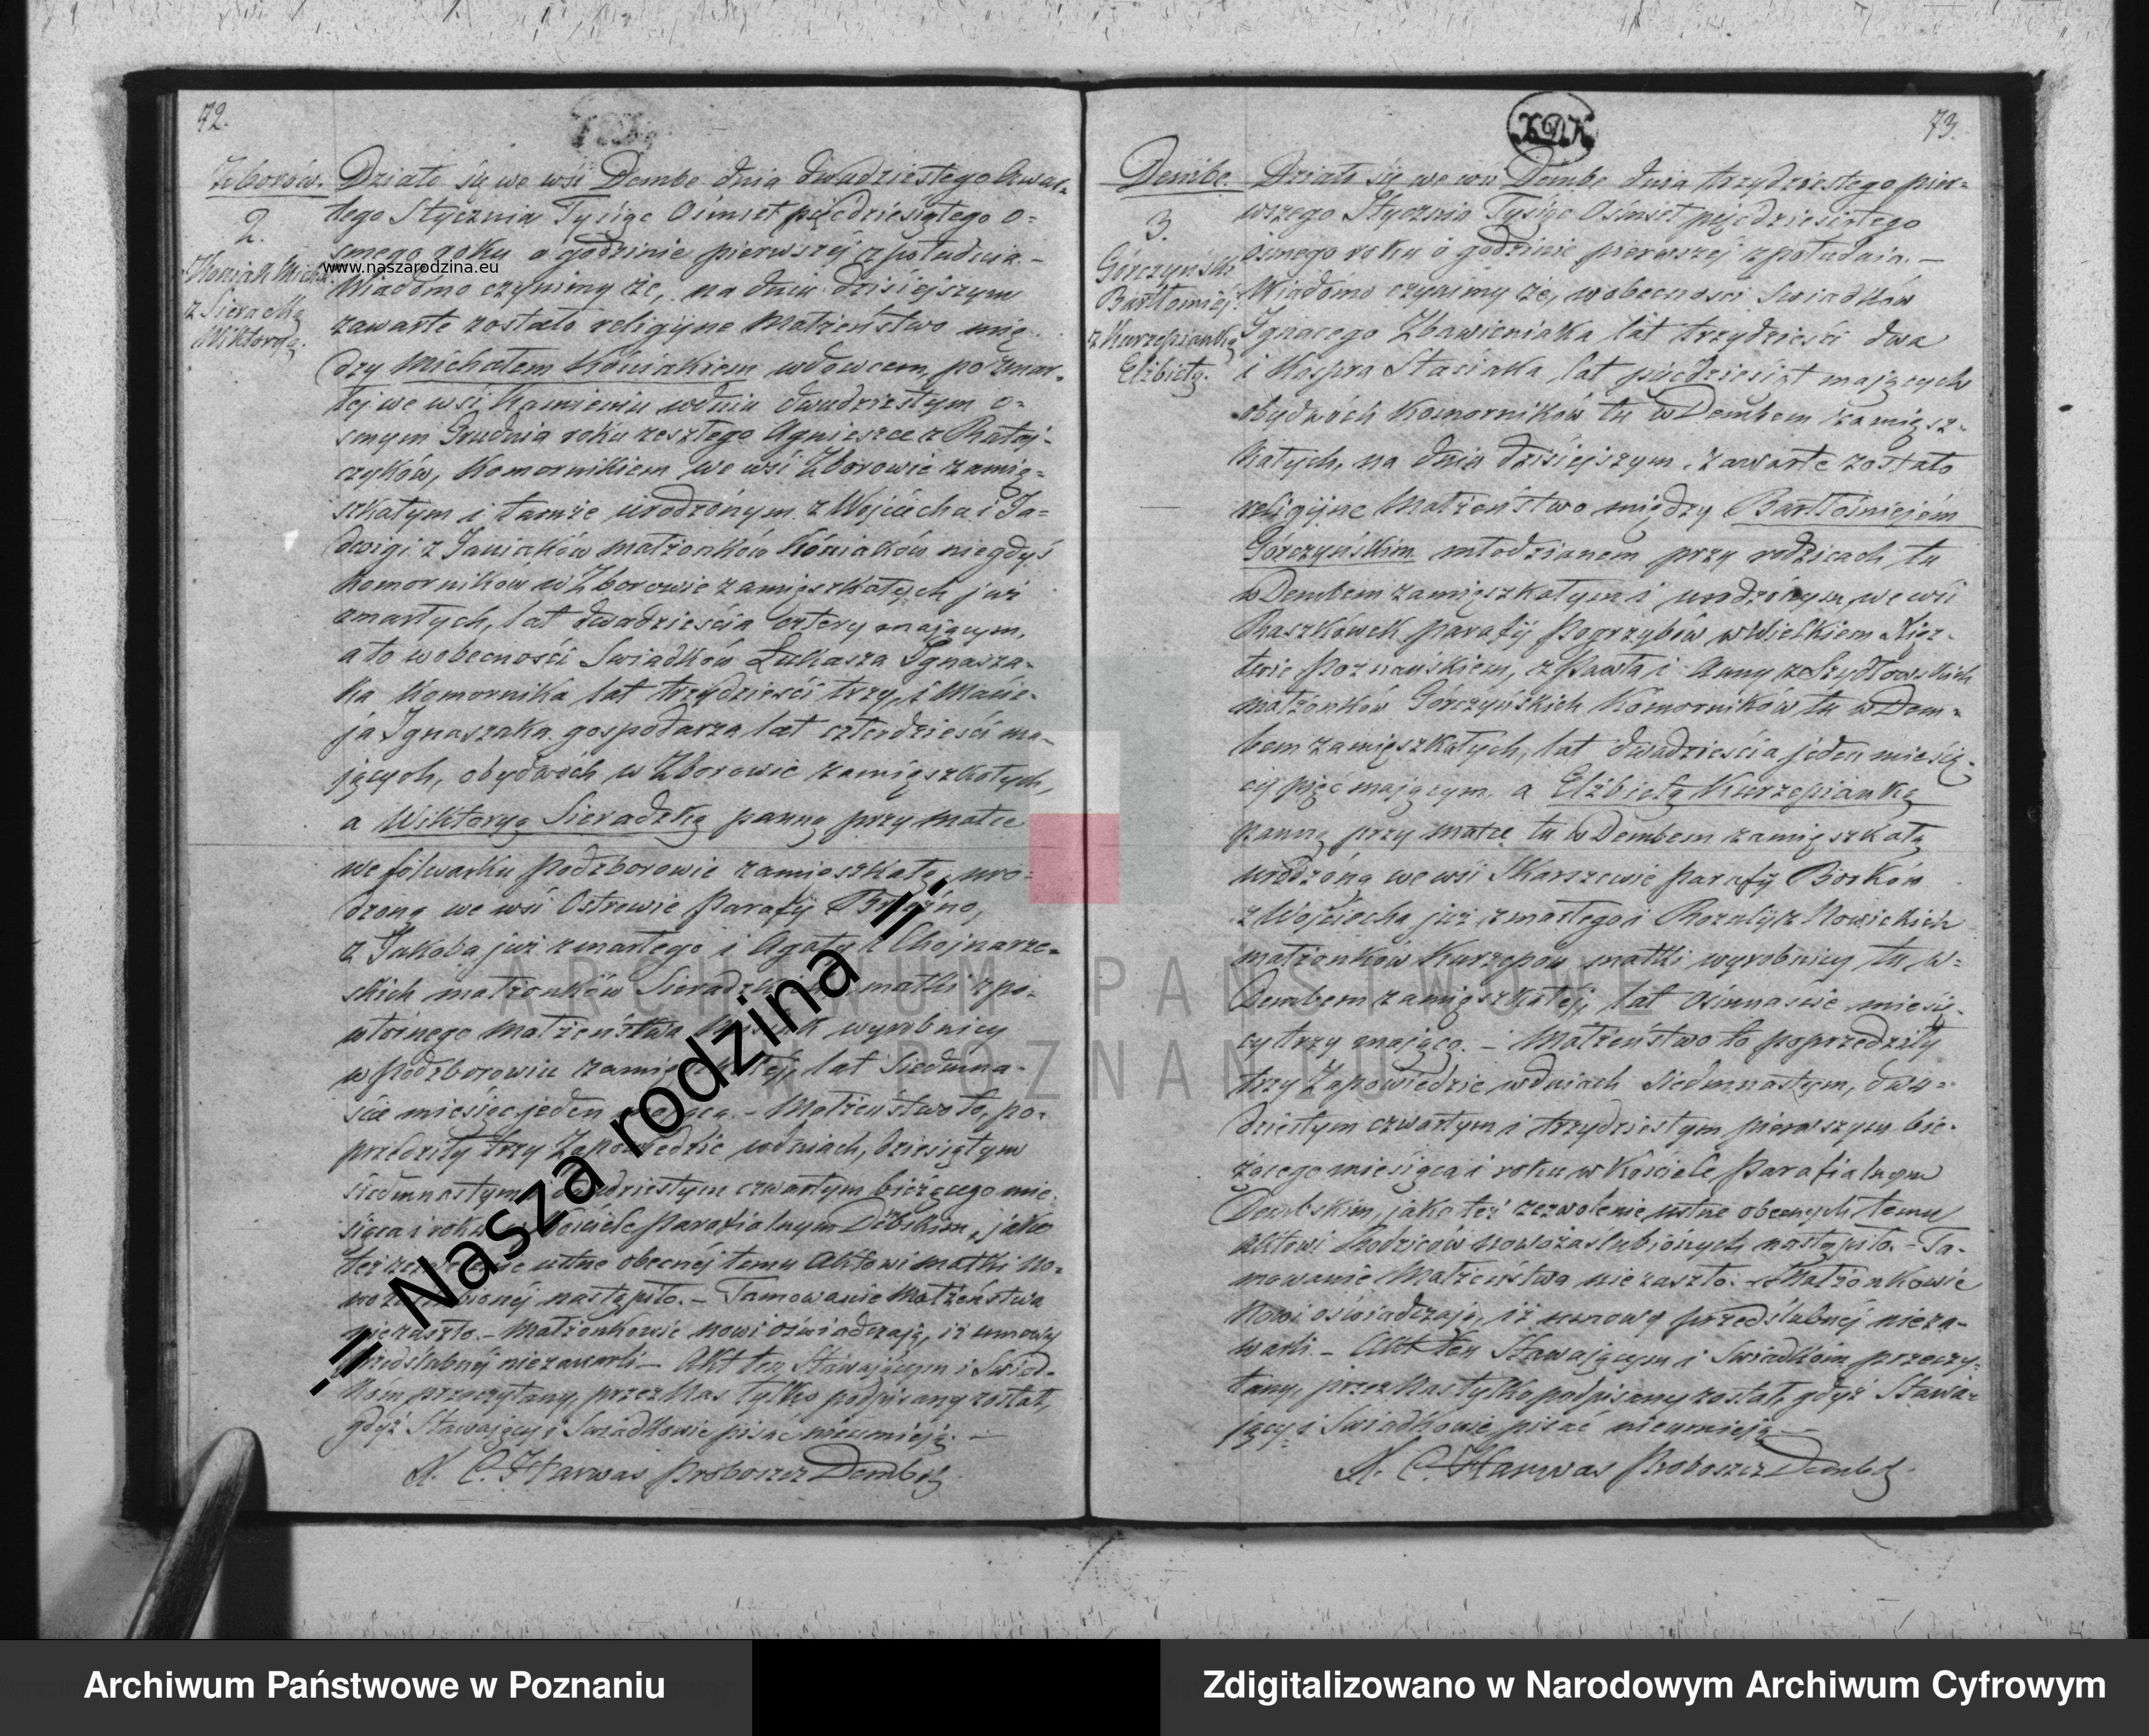 72.
Zborów.
2.
Koniak Michał
z Sieradzką
Wiktoryą.
Działo się we wsi Dembe dnia dwudziestego czwar-
tego Stycznia Tysiąc Ośmset pięćdziesiątego o-
smego roku o godzinie pierwszej z południa. -
www.naszarodzina.eu
Wiadomo czynimy że, na dniu dzisiejszym
zawarte zostało religijne Małżeństwo mię-
dzy Michałem Kóniakiem wdowcem, po zmar-
łej we wsi Kamieniu w dniu dwudziestym o-
smym Grudnia roku zeszłego Agnieszce z Rataj-
czyków, Komornikiem we wsi Zborowie zamię-
szkałym i tamże urodzónym z Wojciecha i Ja-
dwigi z Janiaków małżonków Kóniaków niegdyś
komorników w Zborowie zamięszkałych już
zmarłych, lat dwadzieścia cztery mającym,
a to w obecności Swiadków Łukasza Ignasza-
ka Komornika lat trzydzieści trzy, i Macie-
ja Ignaszaka gospodarza lat czterdzieści ma-
jących, obydwóch w Zborowie zamięszkałych,
a Wiktoryą Sieradzką panną przy matce
we folwarku Podzborowie zamieszkałą, uro-
dzoną we wsi Ostrowie Parafij
z Jakóba już zmarłego i Agaty z Chojnarze-
skich małżonków matki z po-
wtórnego Małżeństwa wyrobnicy
w Podzborowiu lat Siedmna-
ście miesiąc jeden mającą. - Małżeństwo to, po-
przedziły trzy Zapowiedzie w dniach, dziesiątym
siedmnastym dwudziestym czwartym bieżącego mie-
siąca i roku Kościele Parafialnym Dębskim, jako
też ustne obecnéj temu Aktowi matki No-
wo nastąpiło. - Tamowanie Małżeństwa
nie zaszło. - Małżonkowie nowi oświadczają, iż umowy
przedślubnéj niezawarli - Akt ten Stawającym i Świad-
kóm przeczytany, przez Nas tylko podpisany został,
gdyż Stawający i Swiadkowie pisać nieumieją. -
X. C. Harwas Proboszcz Dembsk
-:||: Nasza rodzina :||:-
KDK
73.
Dembe.
3.
Górczyński
Bartłomiéj
z Kurzepianką
Elżbietą.
Działo się we wsi Dembe dnia trzydziestego pier-
wszego Stycznia Tysiąc Ośmset pięćdziesiątego
ósmego roku o godzinie pierwszej z południa. -
Wiadomo czynimy że, w obecności Swiadków
Ignacego Zbawieniaka lat trzydzieści dwa
i Kaspra Stasiaka lat pięćdziesiąt mających
obydwóch Komorników tu w Dembem zamięsz-
kałych, na dniu dzisiejszym zawarte zostało
religijne Małżeństwo między Bartłómiejém
Górczyńskim młodzianem przy rodzicach tu
w Dembem zamięszkałym i urodzónym, we wsi
Raszkówek parafij Pogrzybów w Wielkiem Xięz-
twie Poznańskiem, z Pawła i Anny z Szydłowskich
małżonków Górczyńskich Komorników tu w Dem-
bem zamięszkałych, lat dwadzieścia jeden miesię-
cy pięć mającym. a Elżbietą Kurzepianką
Panną przy matce tu w Dembem zamięszkałą
urodzóną we wsi Skarszewie Parafij Borków
z Wojciecha już zmarłego i Rozalij z Nowickich
małżonków Kurzepów matki wyrobnicy tu w-
Dembem zamięszkałej, lat Ośmnaście miesię-
cy trzy mającą. - Małżeństwo to poprzedziły
trzy Zapowiedzie w dniach siedmnastym, dwu-
dziestym czwartym i trzydziestym pierwszym bie-
żącego miesiąca i roku w Kościele Parafialnym
Dembskim, jako też zezwolenie ustne obecnych temu
Aktowi Rodziców nowozaślubionych nastąpiło. - Ta-
mowanie Małżeństwa nie zaszło. - Małżonkowie
Nowi oświadczają, iż umowy przedślubnéj nieza-
warli. - Akt ten Stawającym i Swiadkóm przeczy-
tany, przez Nas tylko podpisany został, gdyż Stawa-
jący i Swiadkowie pisać nieumieją. -
X. C. Harwas Proboszcz Dembsk
ARCHIWUM PAŃSTWOWE
W POZNANIU
Archiwum Państwowe w Poznaniu
Zdigitalizowano w Narodowym Archiwum Cyfrowym